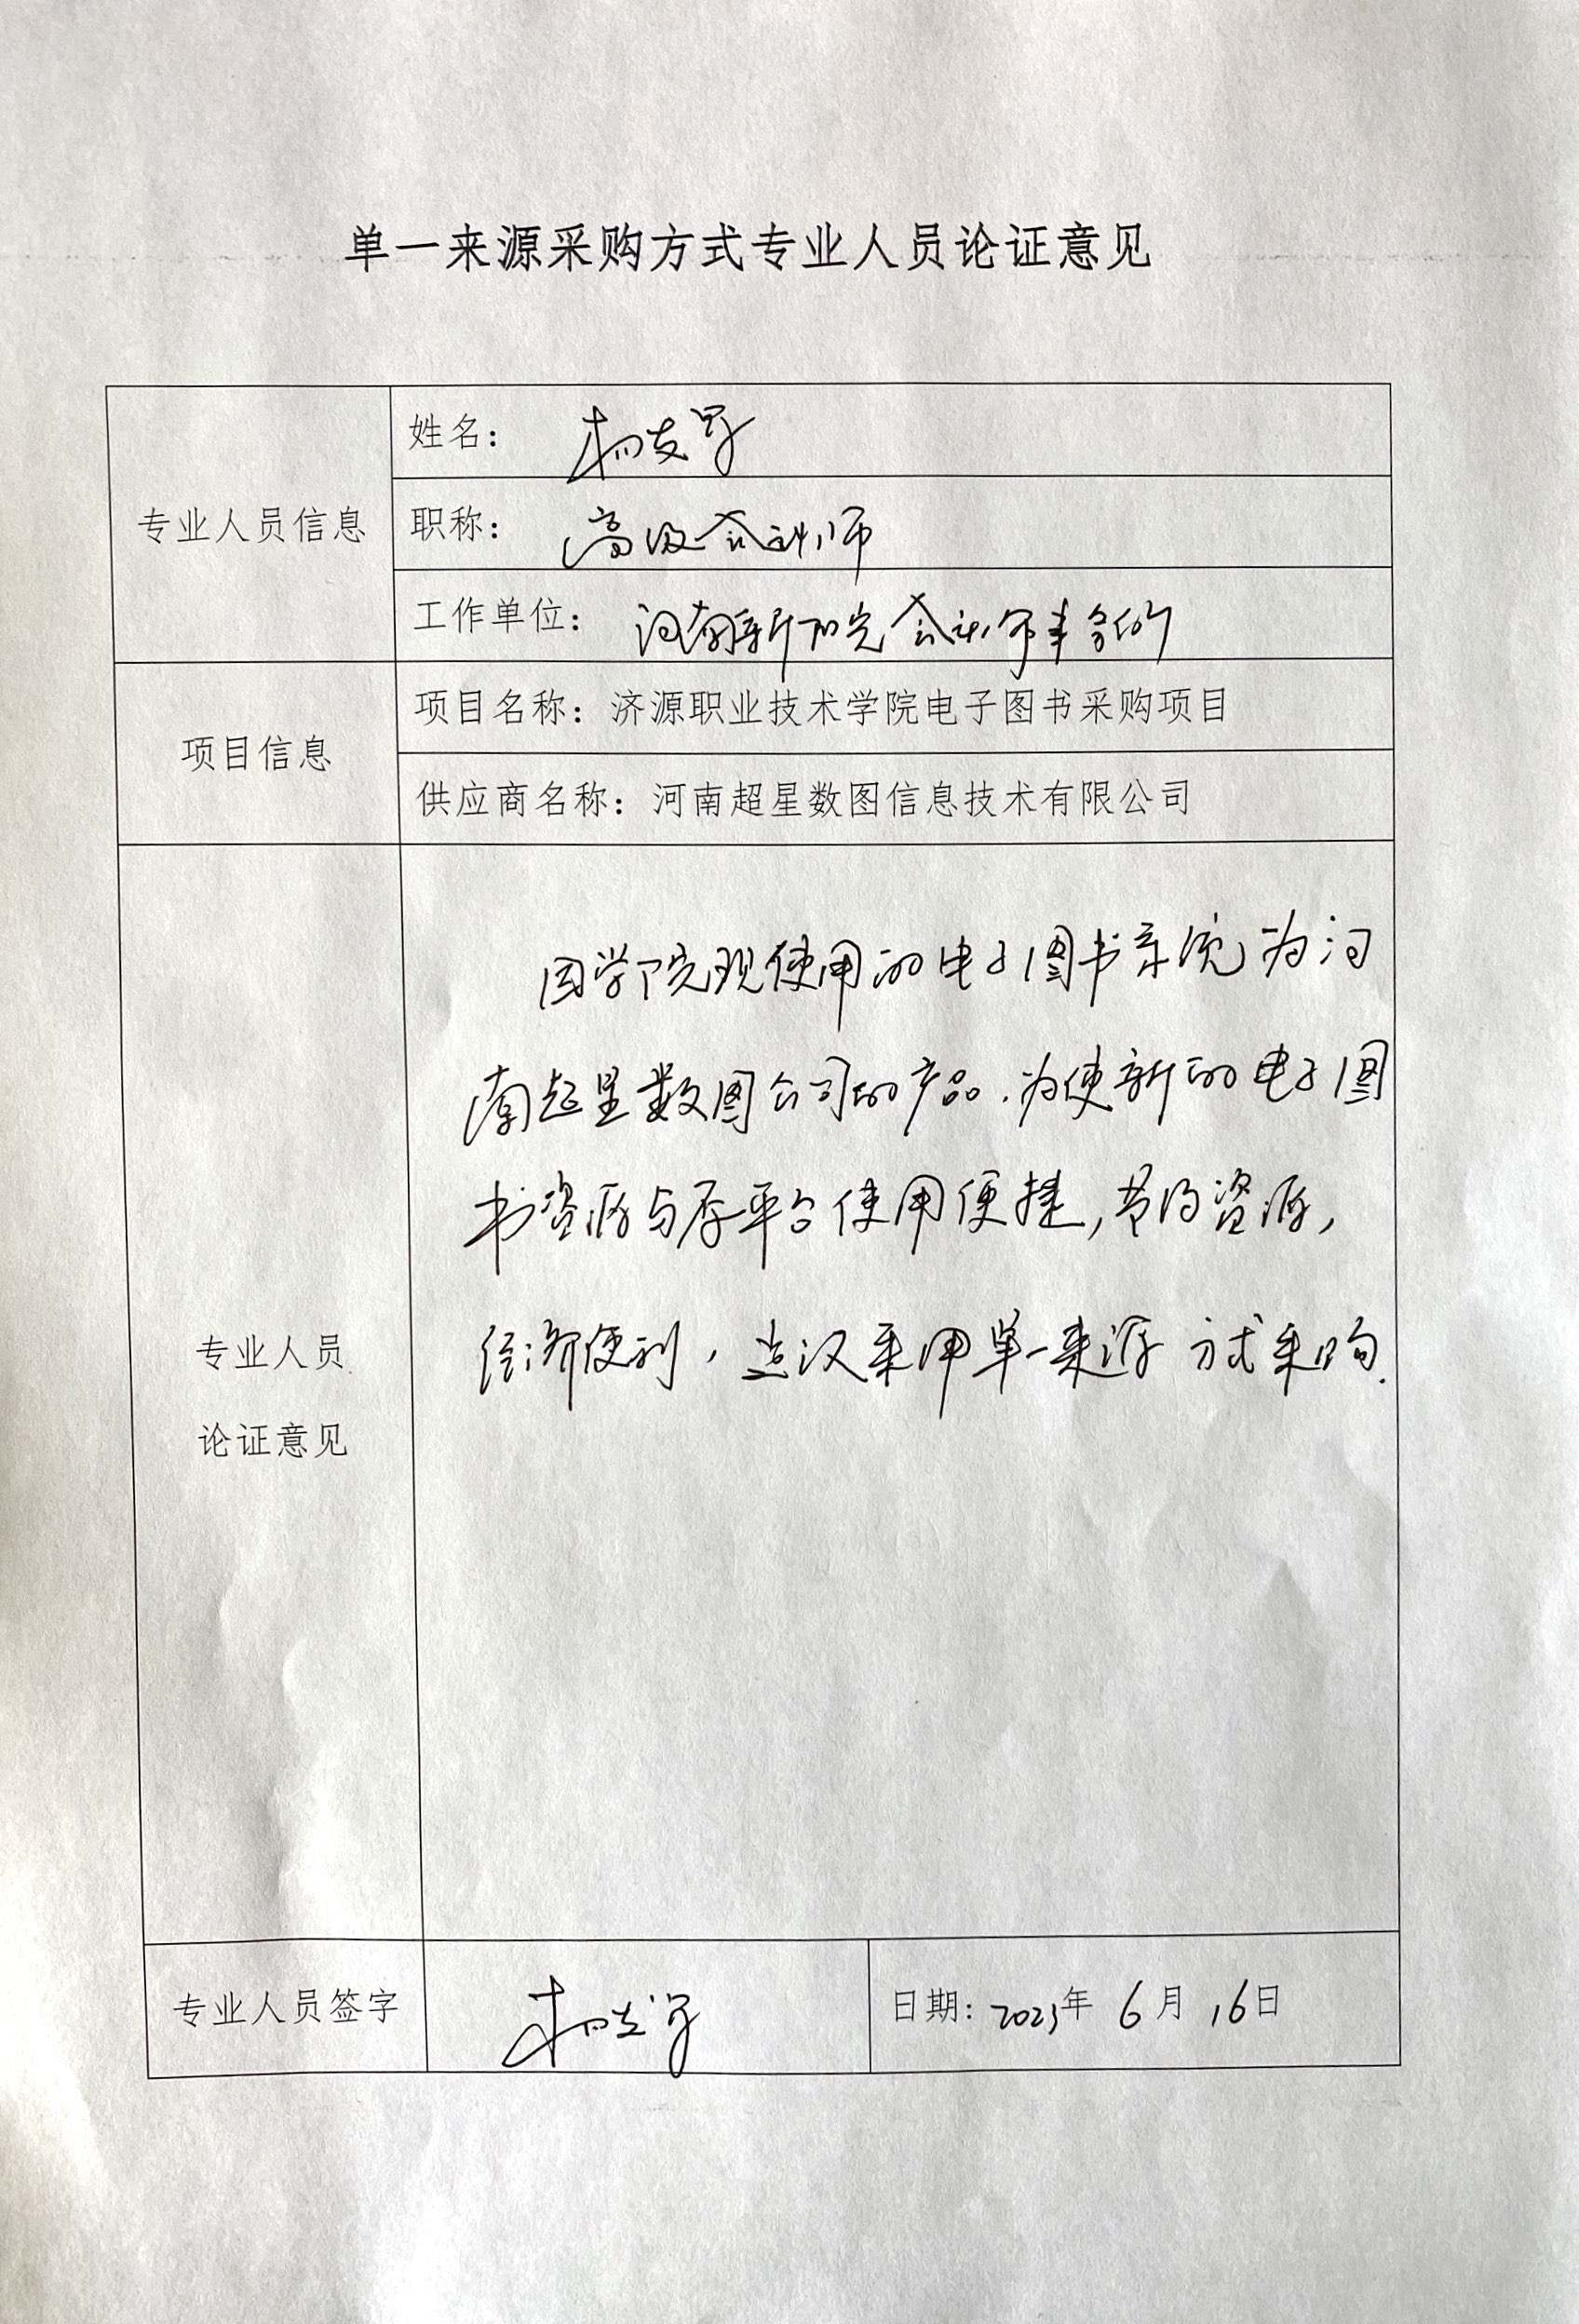 单一来源采购方式专业人员论证意见
专业人员信息
姓名：
职称：高级会计师
工作单位：河南新阳光会计师事务所
项目信息
项目名称：济源职业技术学院电子图书采购项目
供应商名称：河南超星数图信息技术有限公司
专业人员
论证意见
因学院现使用的电子图书系统为河
南超星数图公司的产品.为使新的电子图
书资源与原平台使用便捷,节约资源,
经济便利,建议采用单一来源方式采购.
专业人员签字
日期：2023年6月16日